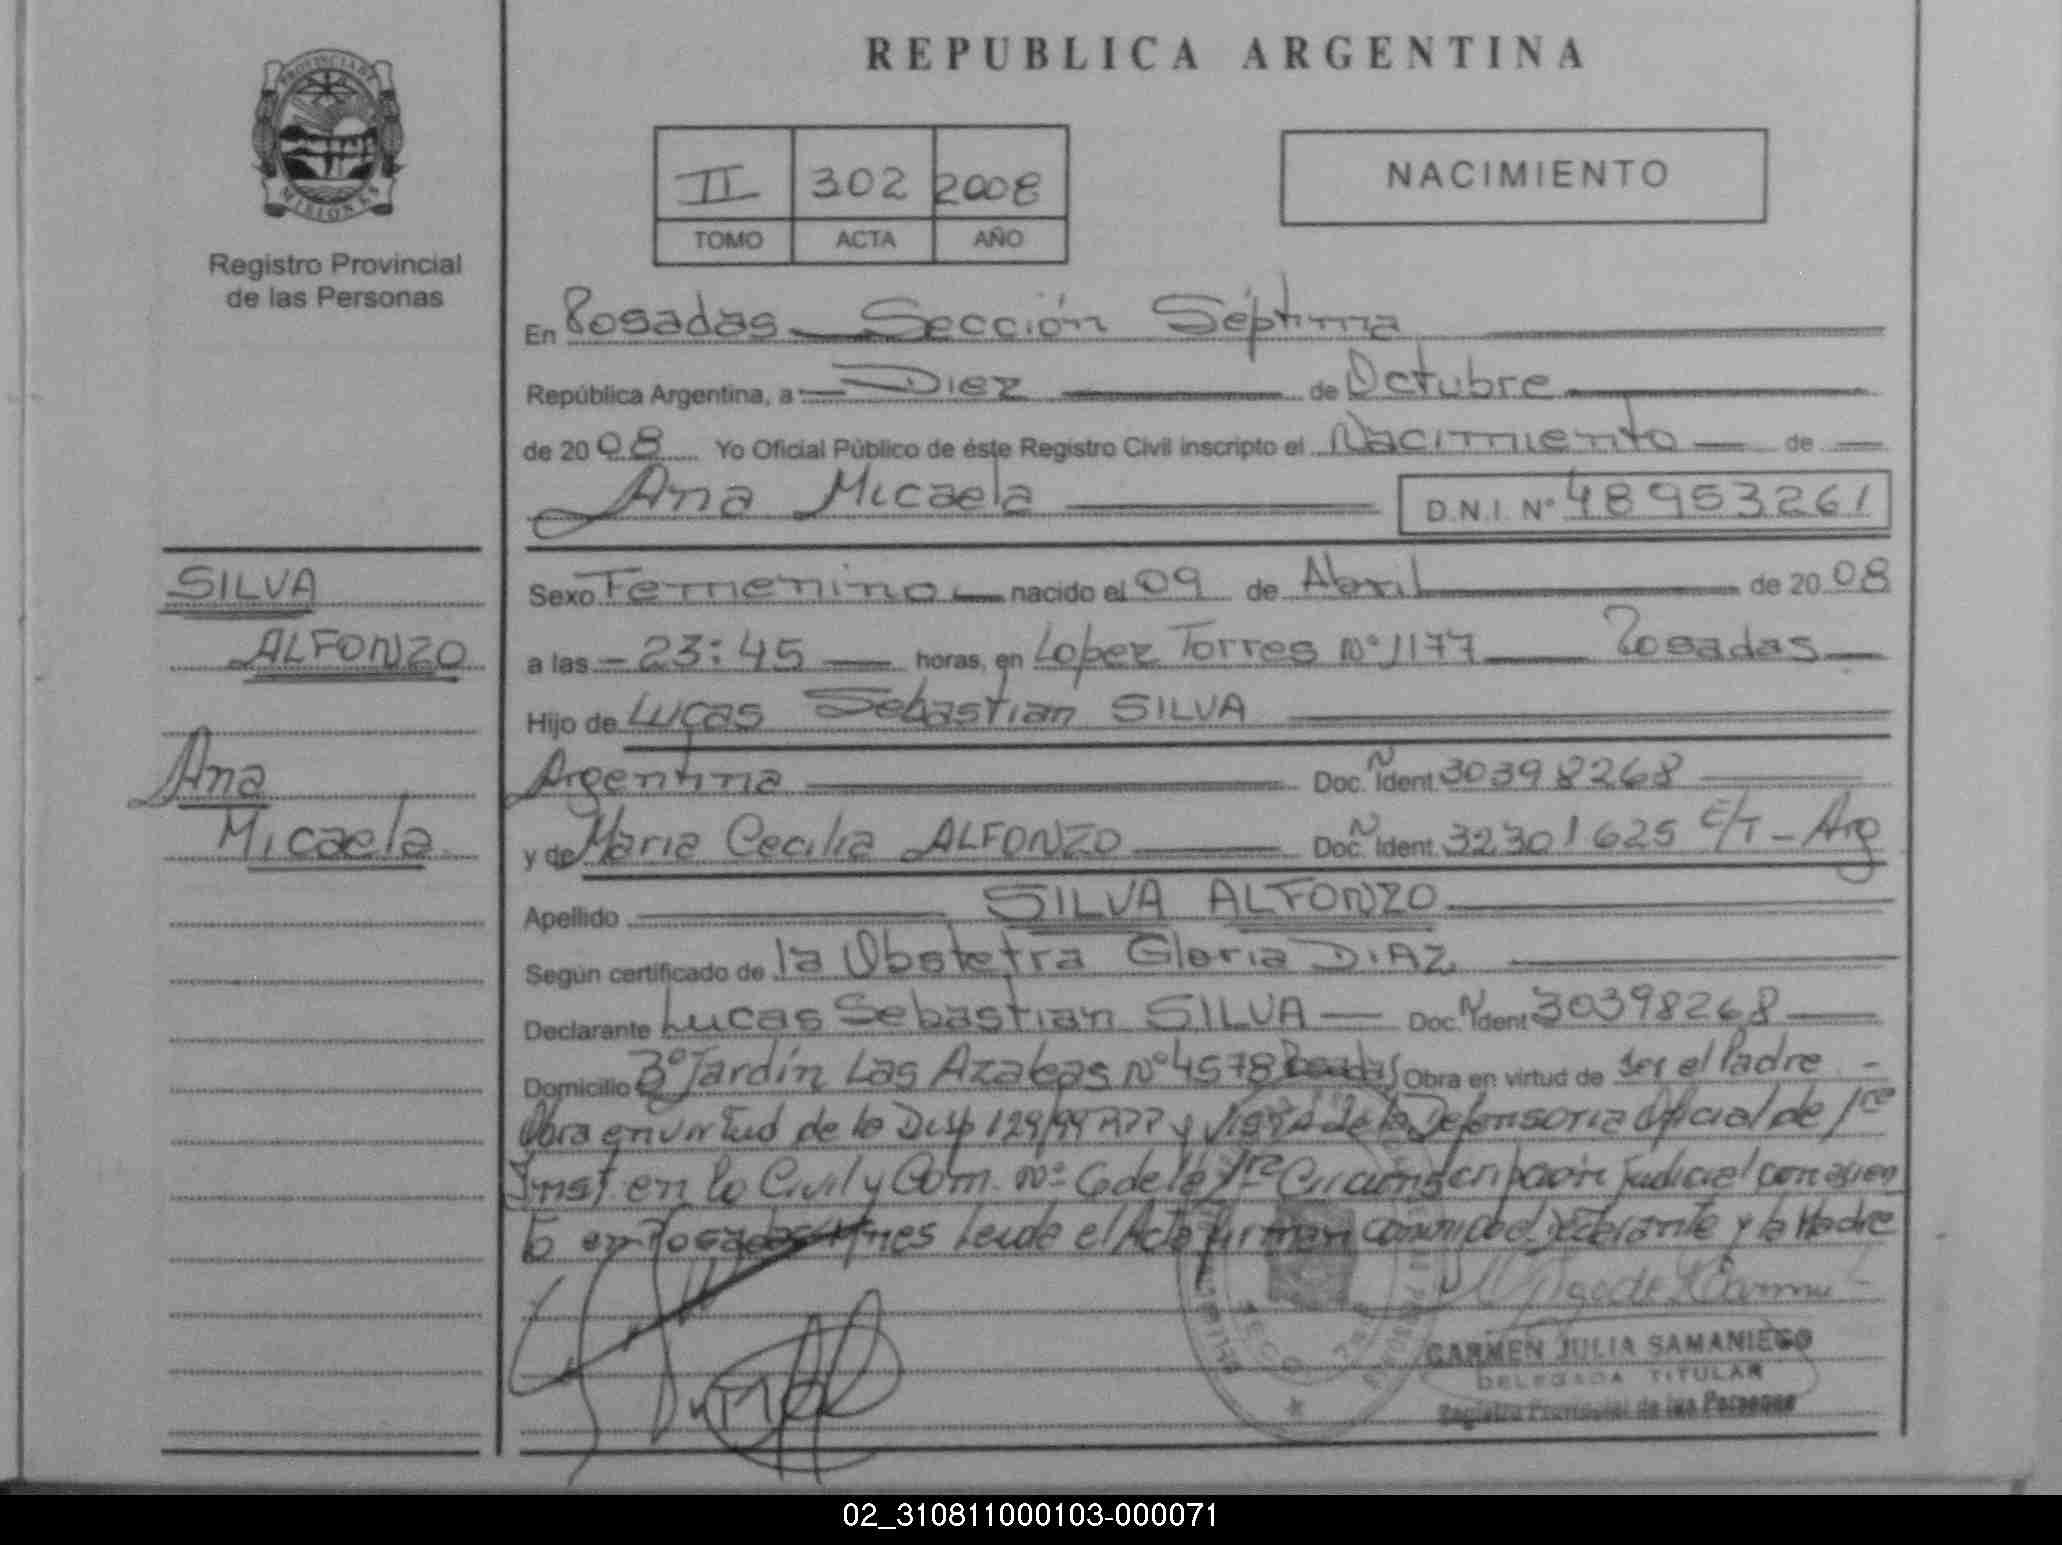 REPUBLICA ARGENTINA
PROVINCIA DE
MISIONES
Registro Provincial
de las Personas
II 302 2008
TOMO ACTA AÑO
NACIMIENTO
En Posadas Sección Séptima
República Argentina, a Diez de Octubre
de 2008 Yo Oficial Público de éste Registro Civil inscripto el Nacimiento de
Ana Micaela D.N.I. Nº 48953261
SILVA
ALFONZO
Ana
Micaela
Sexo Femenino nacido el 09 de Abril de 2008
a las 23:45 horas, en Lopez Torres Nº 1177 Posadas
Hijo de Lucas Sebastian SILVA
Argentina Doc. Ident. 30398268
y de Maria Cecilia ALFONZO Doc. Ident. 32301625 E/T - Arg
Apellido SILVA ALFONZO
Según certificado de la Obstetra Gloria DIAZ
Declarante Lucas Sebastian SILVA Doc. Ident 30398268
Domicilio 3º Jardín Las Azaleas Nº 4578 Posadas Obra en virtud de ser el Padre
Obra en virtud de la Disp 129/99 y de la Defensoria Oficial de 1ra
Inst en lo Civil y Com. Nº 6 de la 1ra Circunscripción Judicial con asien
to en Posadas Mnes Leida el Acta firman conmigo el declarante y la Madre
CARMEN JULIA SAMANIEGO
DELEGADA TITULAR
Registro Provincial de las Personas
02_310811000103-000071